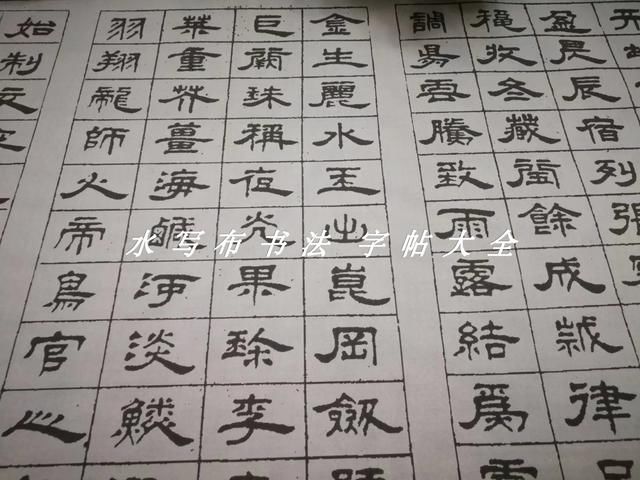 盈昃辰宿列張
穐收冬藏閏餘成歲律
調陽雲騰致雨露結爲
金生麗水玉出崑岡劔
巨闕珠稱夜光果珍李
菜重芥薑海鹹河淡鱗
羽翔龍師火帝鳥官人
始制文
水写布书法字帖大全